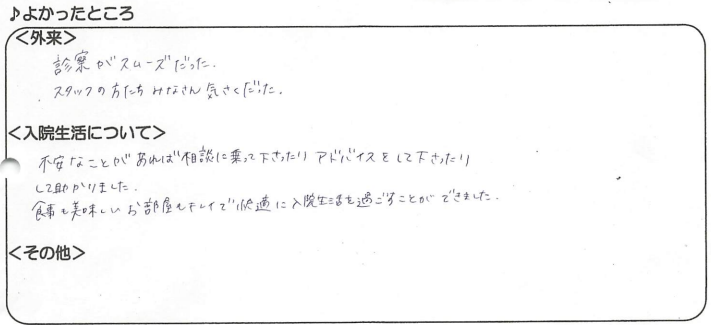 ♪よかったところ
＜外来＞
診察がスムーズだった.
スタッフの方たちみなさん気さくだった.
＜入院生活について＞
不安なことがあれば相談に乗って下さったりアドバイスをして下さったり
して助かりました.
食事も美味しいお部屋もキレイで快適に入院生活を過ごすことができました.
＜その他＞